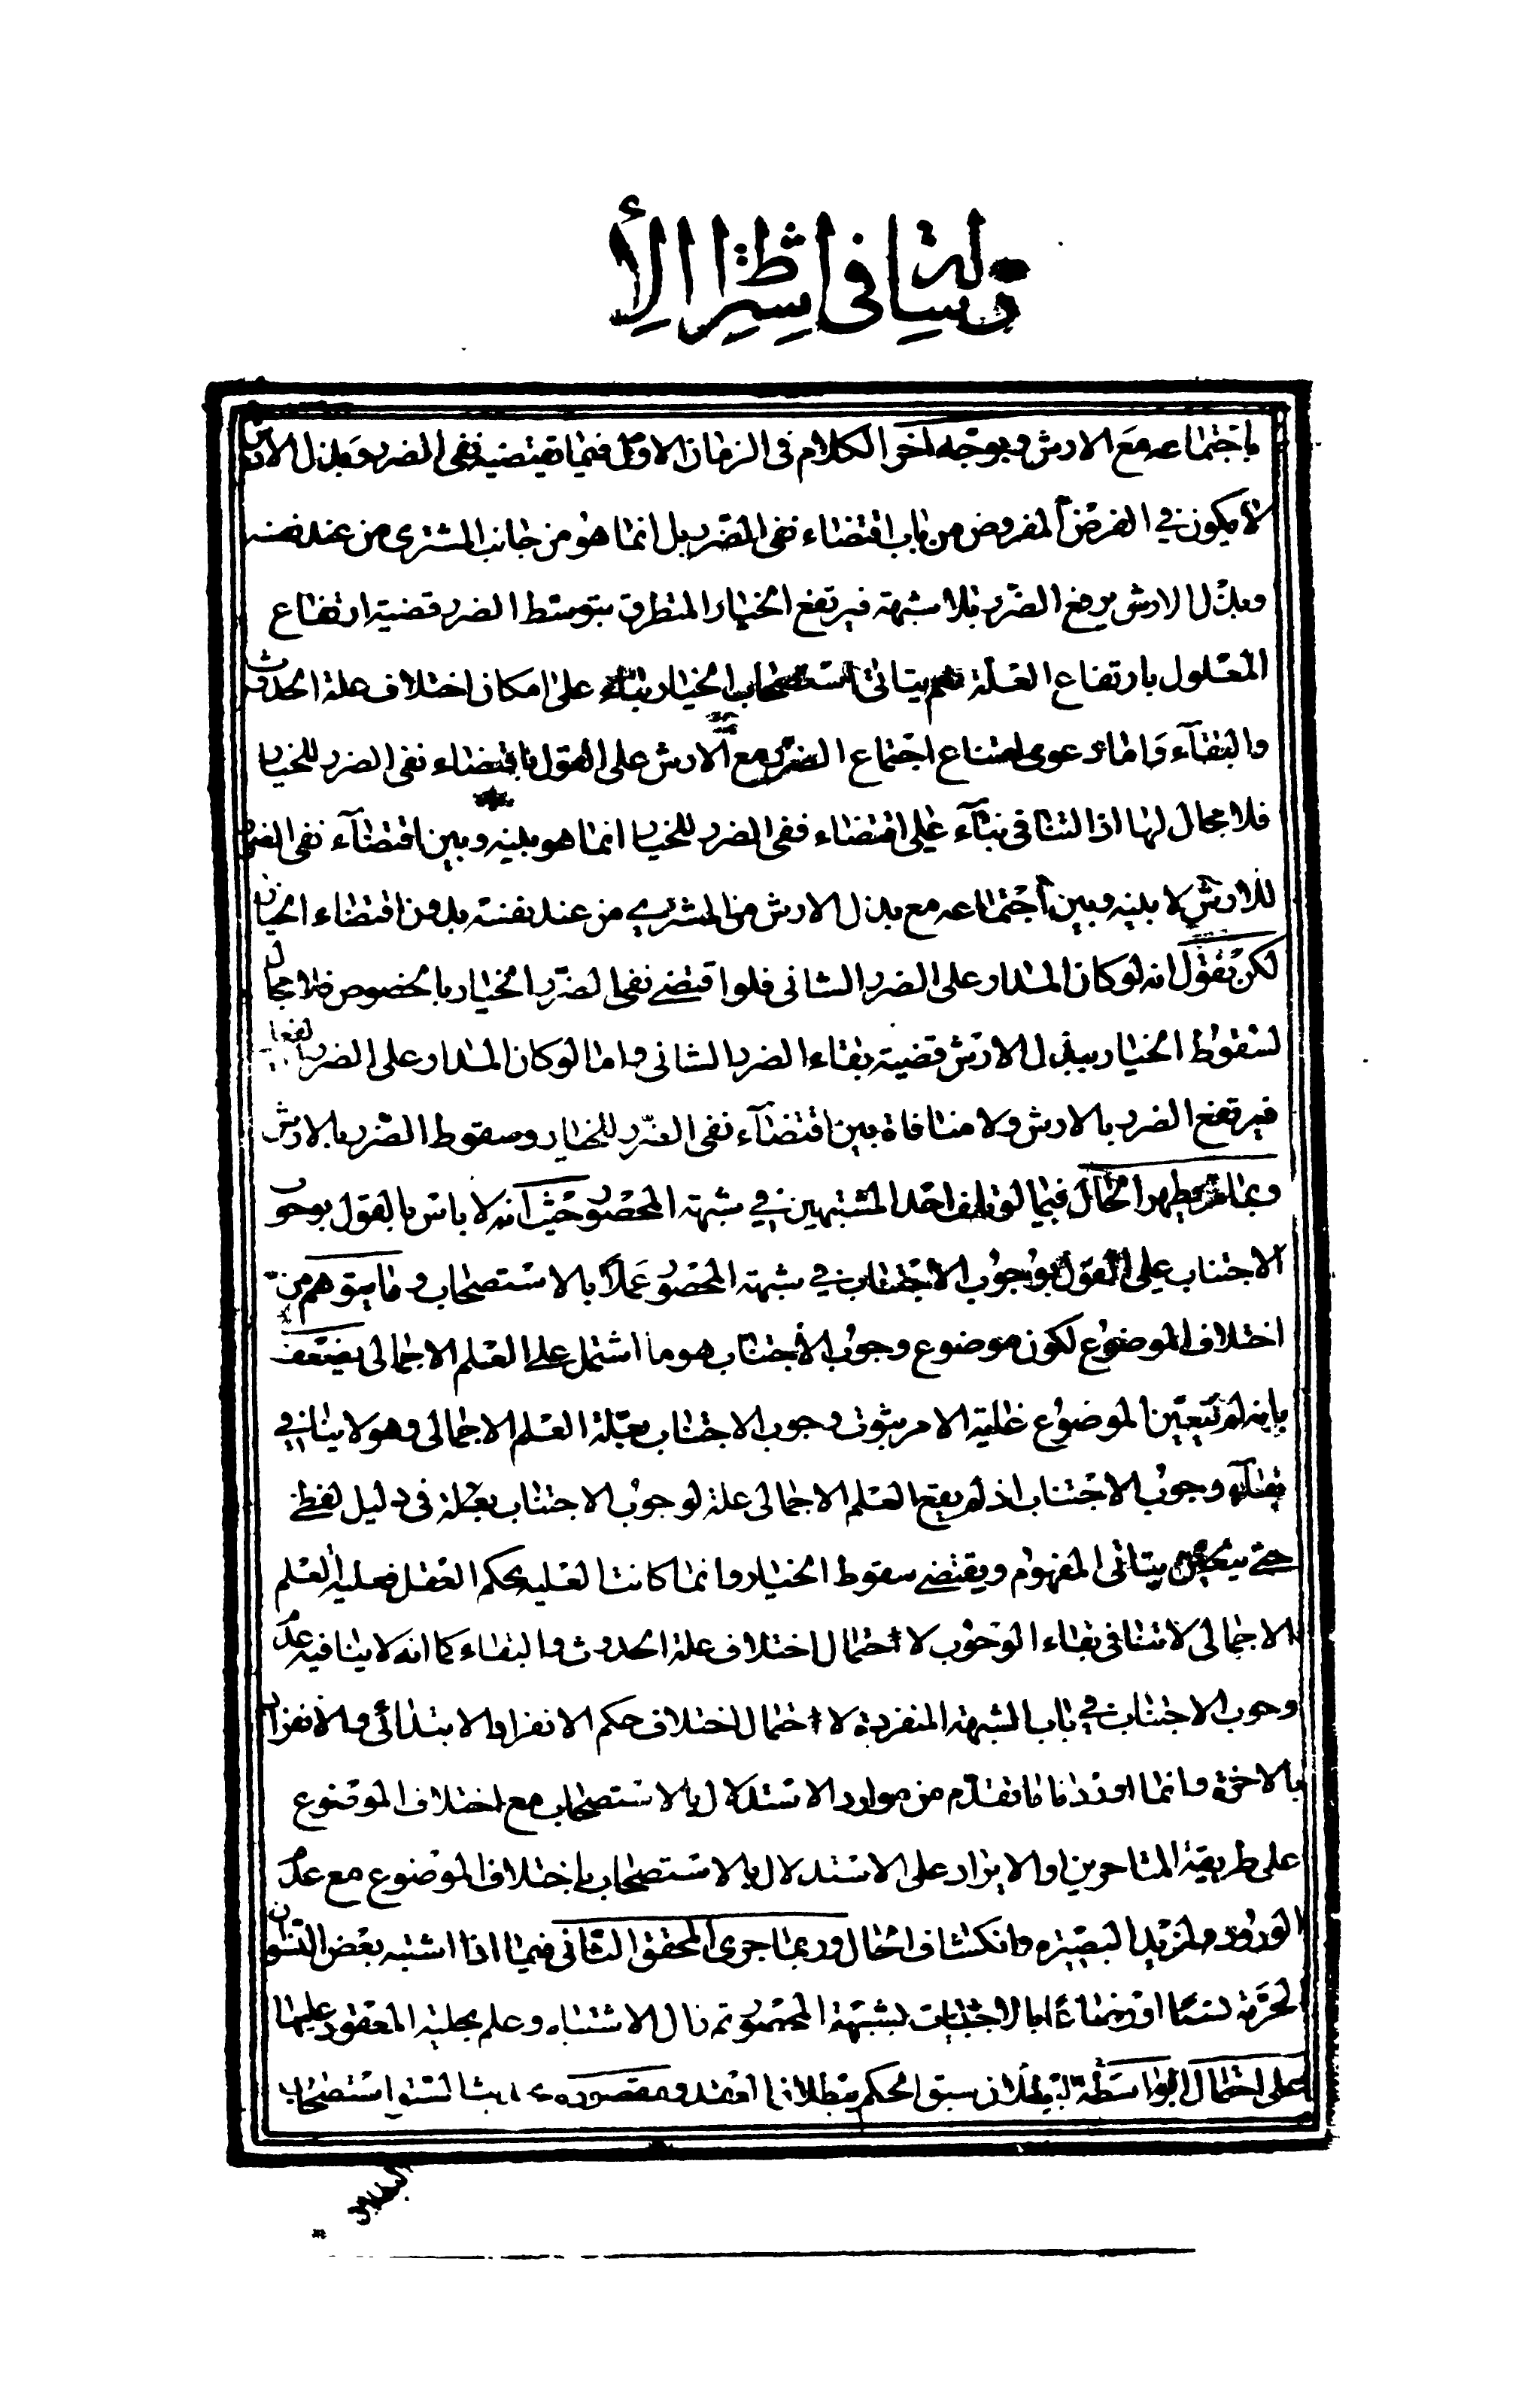 رسالة في اشتراط الا
باجتماعه مع الارش وبوجه اخر الكلام في الزمان الاول فيما يقتضيه نفى الضرر وبذل الارش
لا يكون في الفرض المفروض من باب اقتضاء نفى الضرر بل انما هو من جانب المشترى من عند نفسه
وبذل الارش يرفع الضرر بلا شبهة فيرتفع الخيار المتطرق بتوسط الضرر قضية ارتفاع
المعلول بارتفاع العلة نعم يتاتى استصحاب الخيار بناء على امكان اختلاف علة الحدوث
والبقاء واما دعوى امتناع اجتماع الضرر مع الارش على القول باقتضاء نفى الضرر للخيار
فلا مجال لها اذ التنافى بناء على اقتضاء نفى الضرر للخيار انما هو بينه وبين اقتضاء نفى الضرر
للارش لا بينه وبين اجتماعه مع بذل الارش من المشترى من عند نفسه بدون اقتضاء الخيار
لكن نقول انه لو كان المدار على الضرر الشانى فلو اقتضى نفى الضرر الخيار بالخصوص فلا مجال
لسقوط الخيار ببذل الارش قضية بقاء الضرر الشانى واما لو كان المدار على الضرر الفعلى
فيرتفع الضرر بالارش ولا منافاة بين اقتضاء نفى الضرر للخيار وسقوط الضرر بالارش
وبما مر يظهر الحال فيما لو تلف احد المشتبهين في شبهة المحصور حيث انه لا باس بالقول بوجوب
الاجتناب على القول بوجوب الاجتناب في شبهة المحصور عملا بالاستصحاب وما يتوهم من
اختلاف الموضوع لكون موضوع وجوب الاجتناب هو ما اشتمل على العلم الاجمالى يضعف
بانه لم يتعين الموضوع غاية الامر ثبوت وجوب الاجتناب بعلة العلم الاجمالى وهو لا ينافى
بقاء وجوب الاجتناب اذ لم يقع العلم الاجمالى علة لوجوب الاجتناب بعلة في دليل لفظى
حتى يتاتى المفهوم ويقتضى سقوط الخيار وانما كانت العلية بحكم العقل فعلية العلم
الاجمالى لا تنافى بقاء الوجوب لاحتمال اختلاف علة الحدوث والبقاء كما انه لا ينافيه عدم
وجوب الاجتناب في باب الشبهة المنفردة لاحتمال اختلاف حكم الانفراد الابتدائى والانفراد
بالاخرة وانما اوردنا ما تقدم من موارد الاستدلال بالاستصحاب مع اختلاف الموضوع
على طريقة المتاخرين او الايراد على الاستدلال بالاستصحاب باختلاف الموضوع مع عدم
الورود ولمزيد البصيرة وانكشاف الحال وربما جرى المحقق الثانى فيما اذا اشتبه بعض النسوان
المحرمة نسبا او رضاعا بالاجنبيات لشبهة المحصور ثم زال الاشتباه وعلم بحلية المعقود عليها
على احتمال البطلان سبق الحكم ببطلان العقد ومقصوده